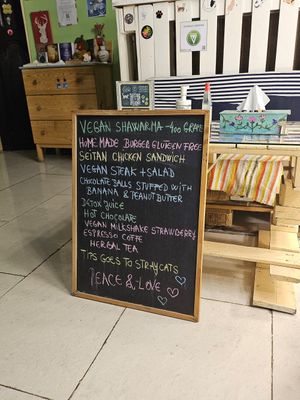 VEGAN SHAWARMA - 400 GRAM
HOME MADE BURGER GLUTEEN FREE
SEITAN CHICKEN SANDWICH
VEGAN STEAK + SALAD
CHOCOLATE BALLS STUFFED WITH
BANANA & PEANUT BUTTER
DETOX JUICE
HOT CHOCOLATE
VEGAN MILKSHAKE STRAWBERRY
ESPRESSO COFFE
HERBAL TEA
TIPS GOES TO STRAYCATS
PEACE & LOVE